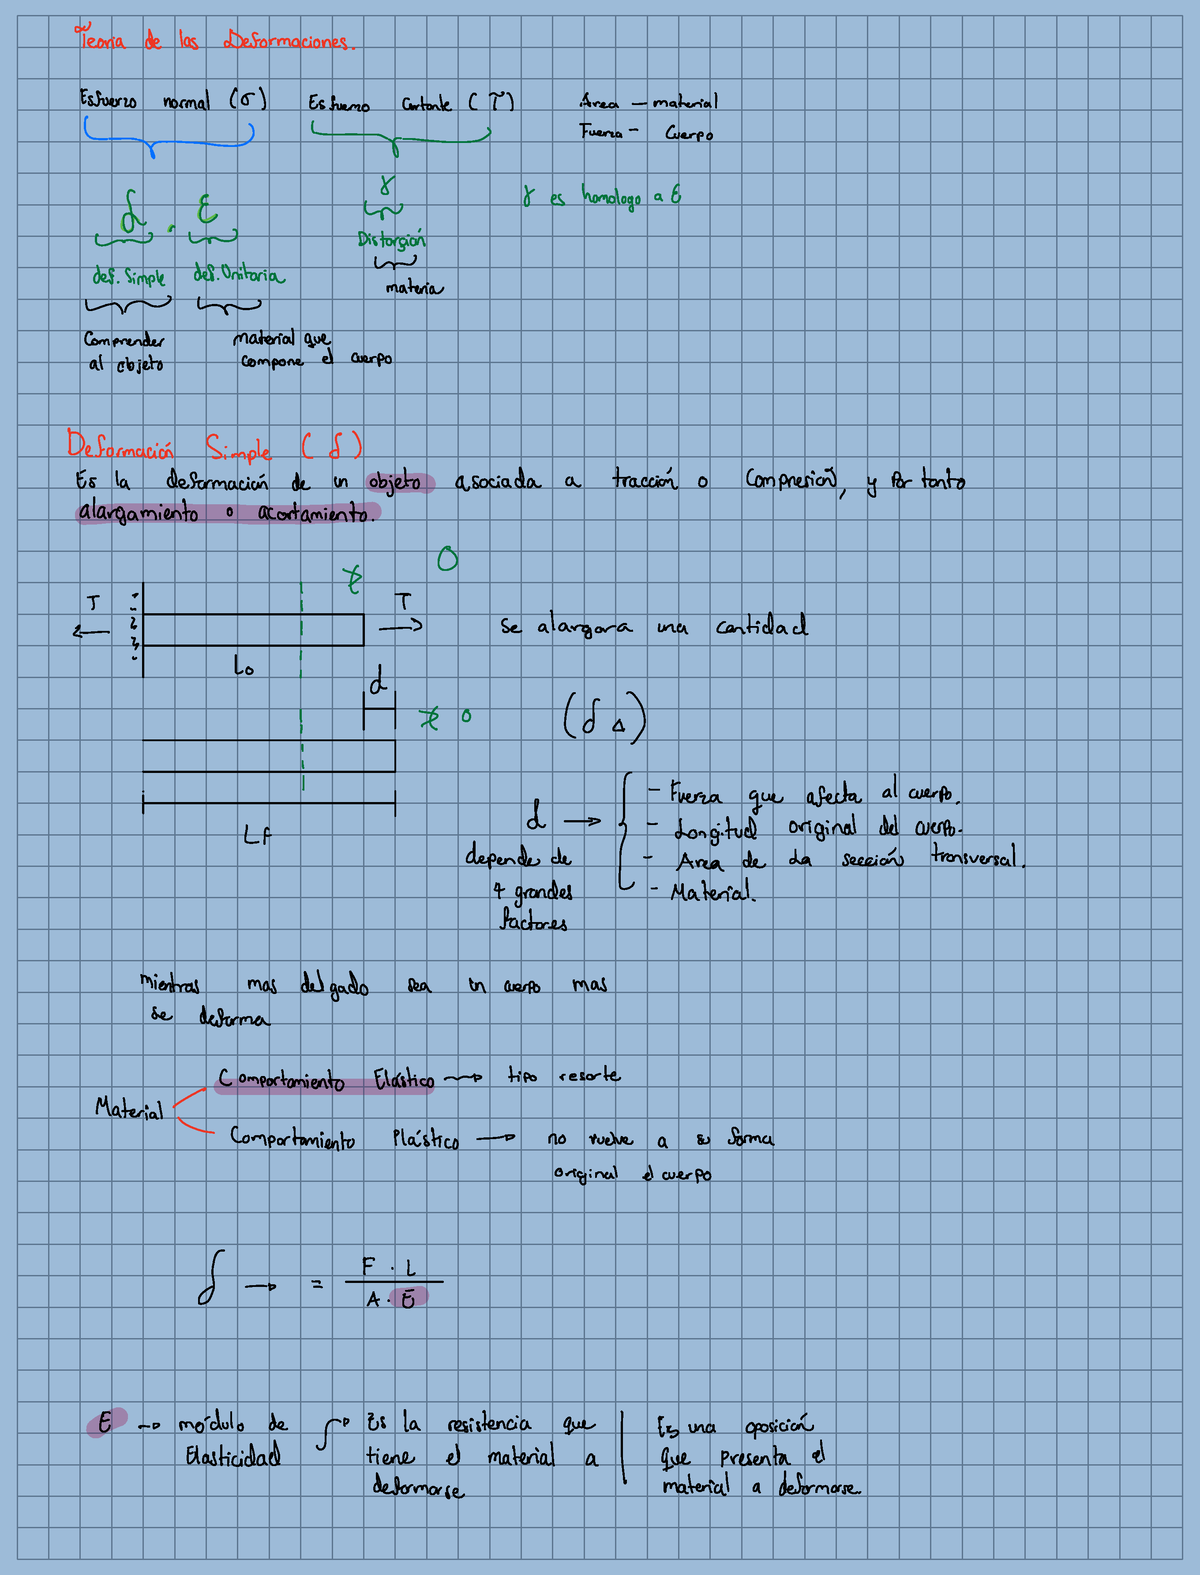 Teoria de las Deformaciones.
Esfuerzo normal (σ) Esfuerzo Cortante (τ) Área – material
Fuerza – Cuerpo
δ . ε γ γ es homologo a ε
Distorsión
def. Simple def. Unitaria
materia
Comprender al objeto material que compone el cuerpo
Deformación Simple (δ)
Es la deformación de un objeto asociada a tracción o Compresión, y por tanto
alargamiento o acortamiento.
T T
Lo
se alargara una cantidad
d
(δ Δ)
Lf
d → - Fuerza que afecta al cuerpo.
- Longitud original del cuerpo.
depende de - Area de la sección transversal.
4 grandes - Material.
factores
mientras mas delgado sea un cuerpo mas
se deforma
Comportamiento Elástico → tipo resorte
Material
Comportamiento Plástico → no vuelve a su forma
original el cuerpo
δ → = F . L
A . E
E → módulo de Es la resistencia que Es una oposición
Elasticidad tiene el material a que presenta el
deformarse material a deformarse.